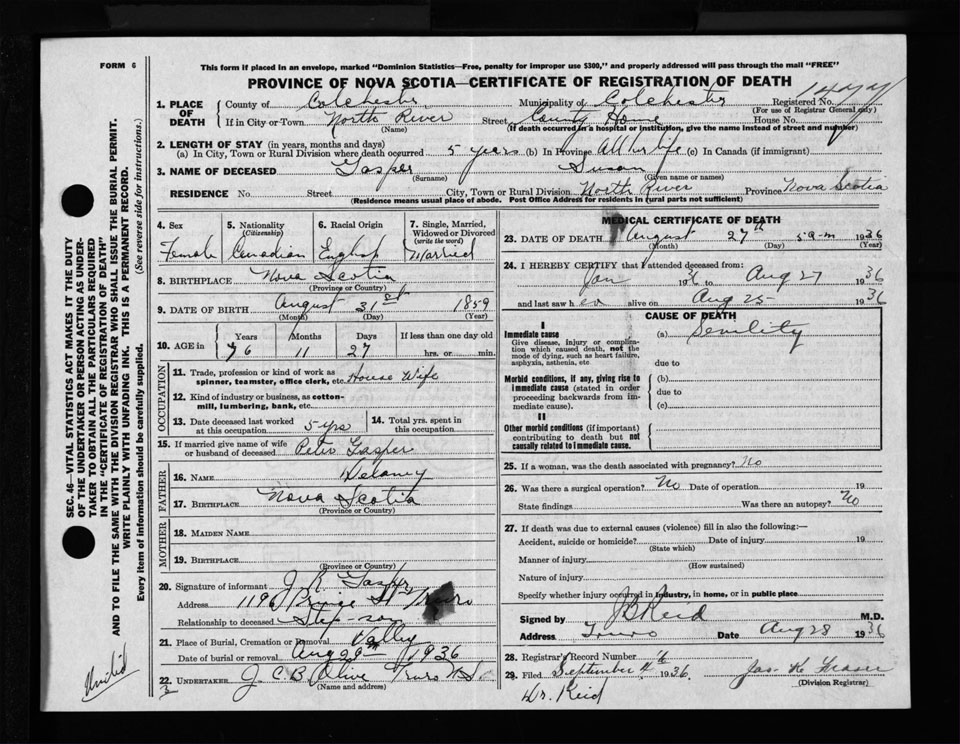 FORM 6
This form if placed in an envelope, marked "Dominion Statistics—Free, penalty for improper use $300," and properly addressed will pass through the mail "FREE"
PROVINCE OF NOVA SCOTIA—CERTIFICATE OF REGISTRATION OF DEATH
1. PLACE OF DEATH
County of Colchester Municipality of Colchester Registered No. 1477
(For use of Registrar General only)
If in City or Town North River Street County Home House No.
(Name) (If death occurred in a hospital or institution, give the name instead of street and number)
2. LENGTH OF STAY (in years, months and days)
(a) In City, Town or Rural Division where death occurred 5 years (b) In Province All her life (c) In Canada (if immigrant)
3. NAME OF DECEASED Gasper Susan
(Surname) (Given name or names)
RESIDENCE No. Street City, Town or Rural Division North River Province Nova Scotia
(Residence means usual place of abode. Post Office Address for residents in rural parts not sufficient)
4. Sex Female
5. Nationality (Citizenship) Canadian
6. Racial Origin English
7. Single, Married, Widowed or Divorced (write the word) Married
8. BIRTHPLACE Nova Scotia
(Province or Country)
9. DATE OF BIRTH August 31st 1859
(Month) (Day) (Year)
10. AGE in Years 76 Months 11 Days 27 If less than one day old hrs. or min.
OCCUPATION
11. Trade, profession or kind of work as spinner, teamster, office clerk, etc. House Wife
12. Kind of industry or business, as cotton-mill, lumbering, bank, etc.
13. Date deceased last worked at this occupation 5 yrs
14. Total yrs. spent in this occupation
15. If married give name of wife or husband of deceased Peter Gasper
FATHER
16. NAME Delaney
17. BIRTHPLACE Nova Scotia
(Province or Country)
MOTHER
18. MAIDEN NAME
19. BIRTHPLACE
(Province or Country)
20. Signature of informant J. R. Gasper
Address 119 Prince St Truro
Relationship to deceased Step-son
21. Place of Burial, Cremation or Removal Valley
Date of burial or removal Aug 29th 1936
22. UNDERTAKER J C B Olive Truro N.S.
(Name and address)
MEDICAL CERTIFICATE OF DEATH
23. DATE OF DEATH August 27th 5 a-m 1936
(Month) (Day) (Year)
24. I HEREBY CERTIFY that I attended deceased from:
Jan 1936 to Aug 27 1936
and last saw her alive on Aug 25 1936
CAUSE OF DEATH
I
Immediate cause (a) Senility
Give disease, injury or complication which caused death, not the mode of dying, such as heart failure, asphyxia, asthenia, etc
due to
Morbid conditions, if any, giving rise to immediate cause (stated in order proceeding backwards from immediate cause).
(b)
due to
(c)
II
Other morbid conditions (if important) contributing to death but not causally related to immediate cause.
25. If a woman, was the death associated with pregnancy? No
26. Was there a surgical operation? No Date of operation 19
State findings Was there an autopsy? No
27. If death was due to external causes (violence) fill in also the following:—
Accident, suicide or homicide? Date of injury 19
(State which)
Manner of injury
(How sustained)
Nature of injury
Specify whether injury occurred in industry, in home, or in public place
Signed by J B Reid M.D.
Address Truro Date Aug 28 1936
28. Registrar's Record Number
29. Filed September 1936 Jas. K. Fraser
(Division Registrar)
Dr. Reid
SEC. 46—VITAL STATISTICS ACT MAKES IT THE DUTY
OF THE UNDERTAKER OR PERSON ACTING AS UNDER-
TAKER TO OBTAIN ALL THE PARTICULARS REQUIRED
IN THE "CERTIFICATE OF REGISTRATION OF DEATH"
AND TO FILE THE SAME WITH THE DIVISION REGISTRAR WHO SHALL ISSUE THE BURIAL PERMIT.
WRITE PLAINLY WITH UNFADING INK. THIS IS A PERMANENT RECORD.
Every item of information should be carefully supplied. (See reverse side for instructions.)